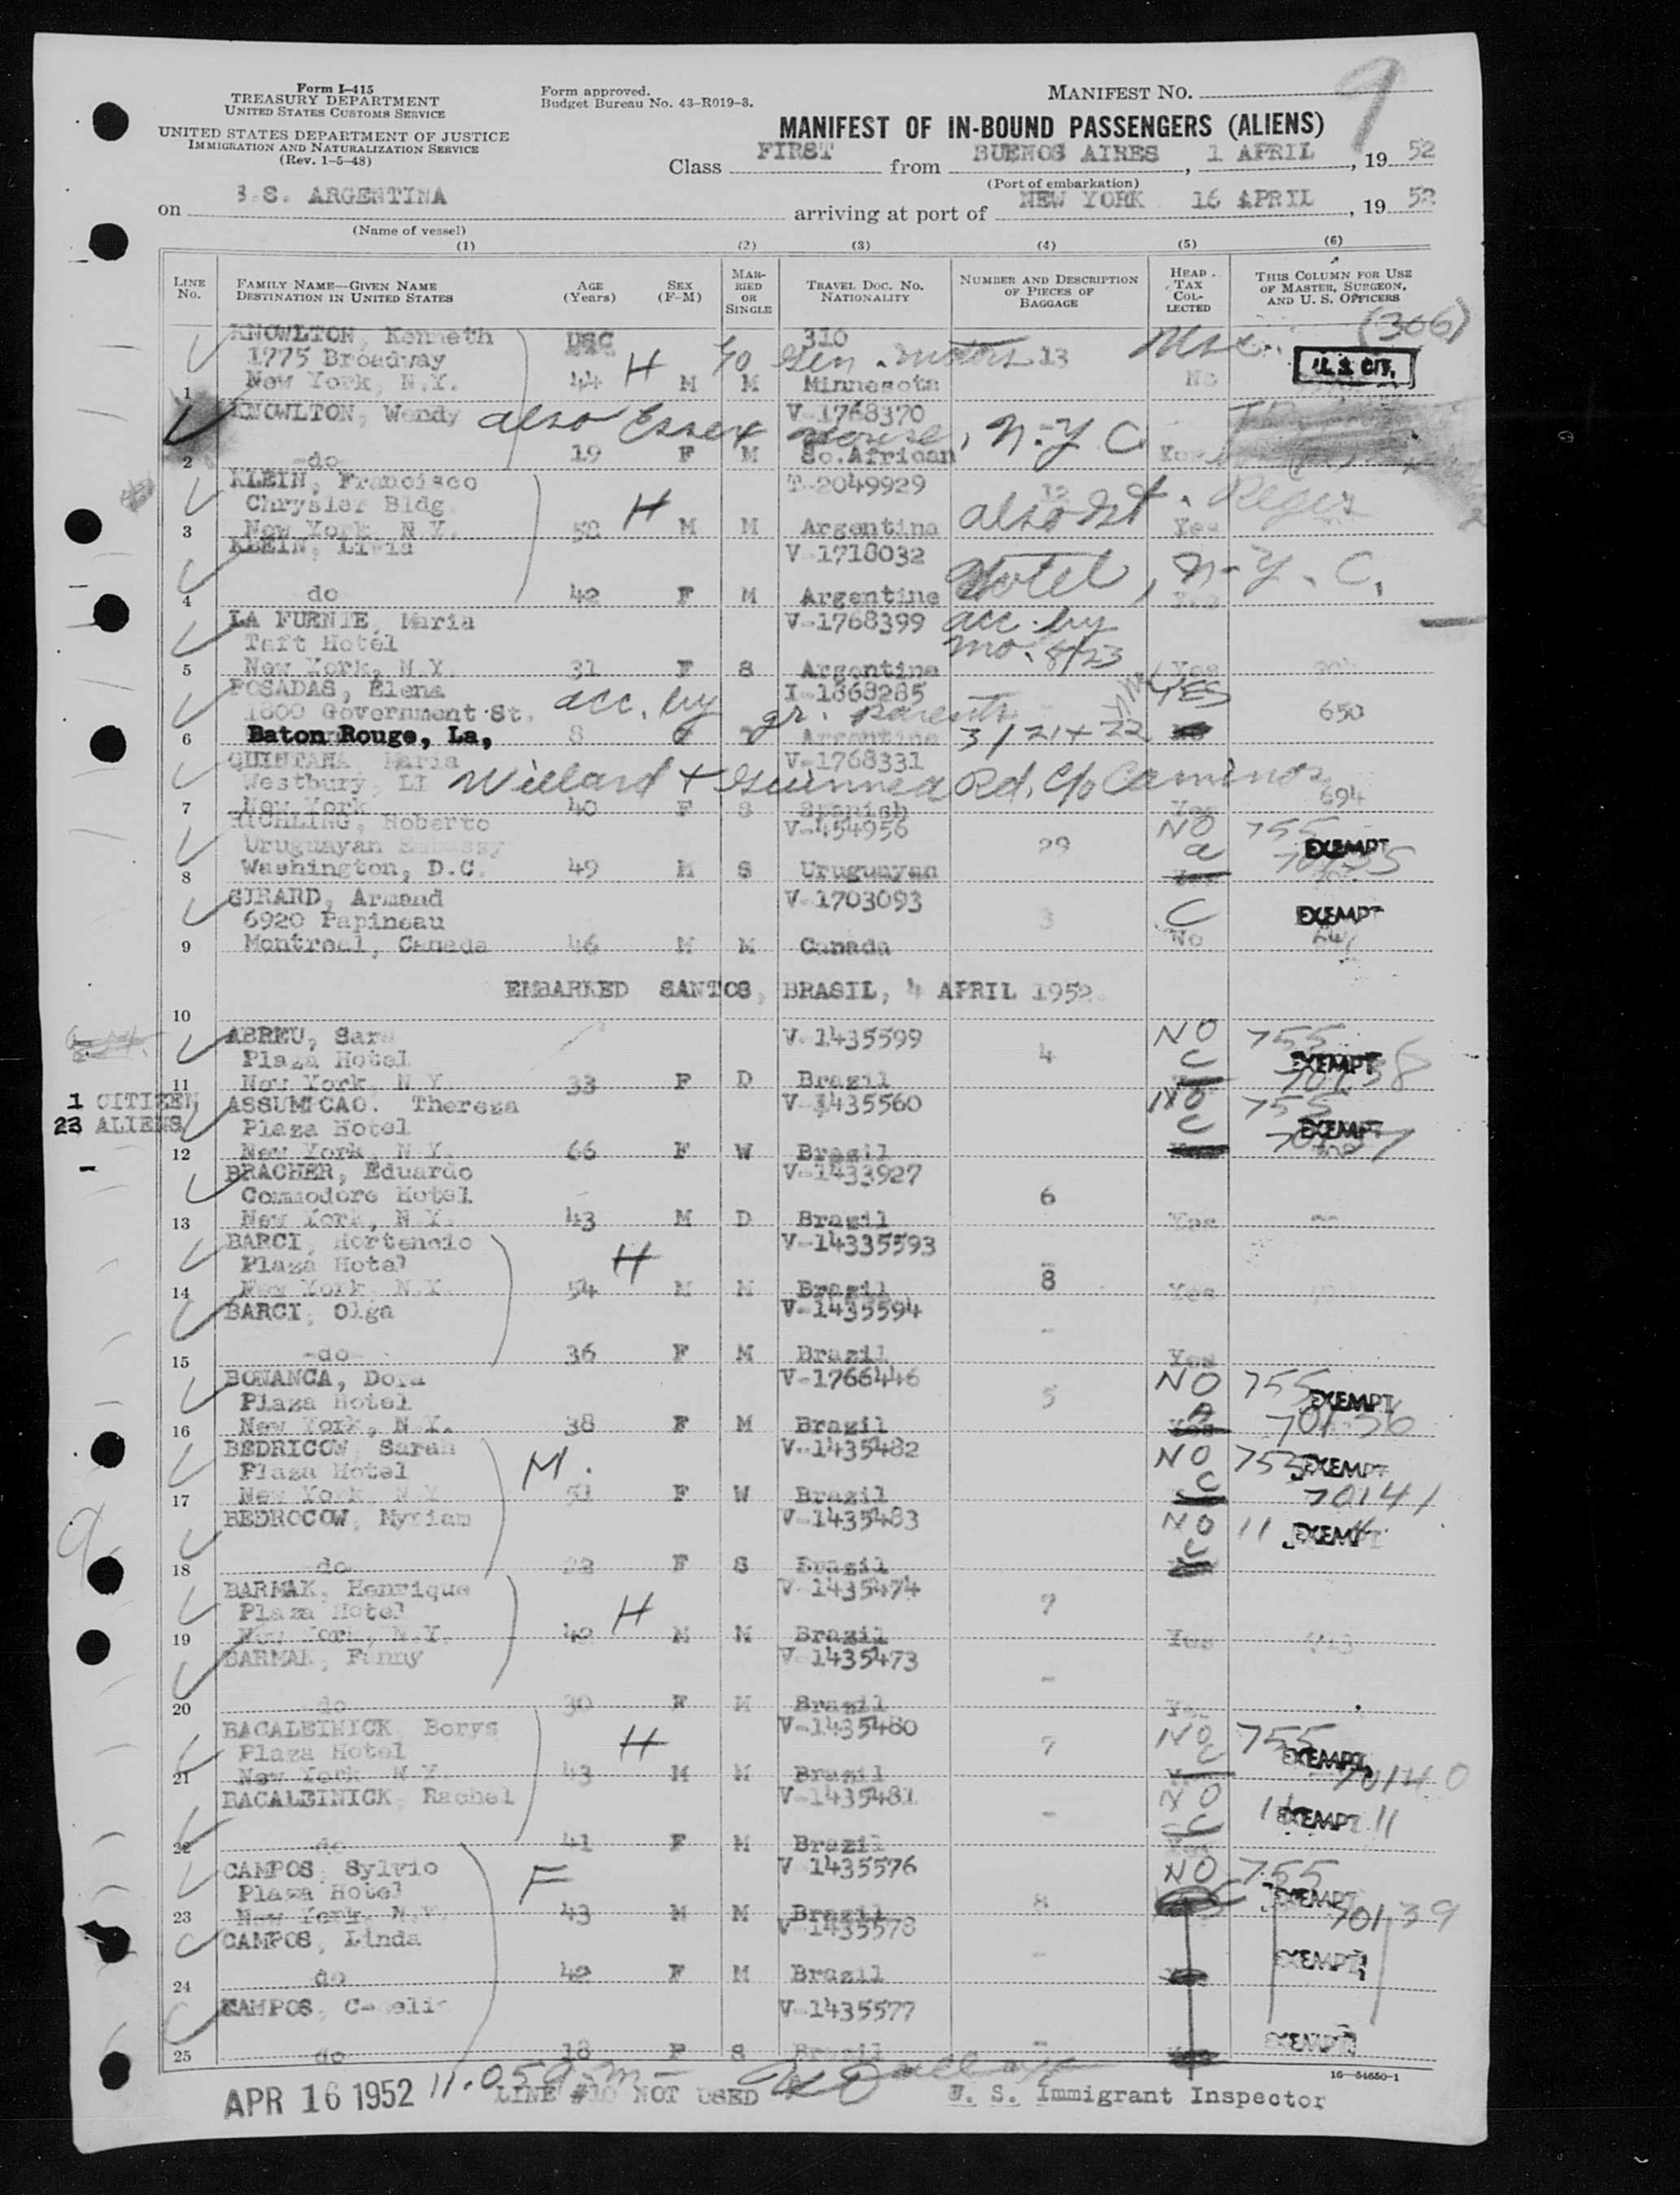 Form I-415
TREASURY DEPARTMENT
UNITED STATES CUSTOMS SERVICE
UNITED STATES DEPARTMENT OF JUSTICE
IMMIGRATION AND NATURALIZATION SERVICE
(Rev. 1-5-48)
Form approved.
Budget Bureau No. 43-R019-3.
MANIFEST NO.
9
MANIFEST OF IN-BOUND PASSENGERS (ALIENS)
Class FIRST from BUENOS AIRES, 1 APRIL, 19 52
(Port of embarkation)
on S.S. ARGENTINA arriving at port of NEW YORK 16 APRIL, 19 52
(Name of vessel)
(1) (2) (3) (4) (5) (6)
LINE No. FAMILY NAME—GIVEN NAME DESTINATION IN UNITED STATES AGE (Years) SEX (F-M) MARRIED OR SINGLE TRAVEL DOC. NO. NATIONALITY NUMBER AND DESCRIPTION OF PIECES OF BAGGAGE HEAD TAX COLLECTED THIS COLUMN FOR USE OF MASTER, SURGEON, AND U. S. OFFICERS
(306)
KNOWLTON, Kenneth USC 310
1775 Broadway H c/o Gen. Motors 13 U.S. CIT.
1 New York, N.Y. 44 M M Minnesota No
KNOWLTON, Wendy V-1768370
also Essex House, N.Y.C.
2 -do- 19 F M So.African
KLEIN, Francisco T-2049929
Chrysler Bldg H 12 also St. Regis
3 New York, N.Y. 58 M M Argentina Yes
KLEIN, Livia V-1718032
Hotel, N.Y.C.
4 do 42 F M Argentine Yes
LA FUENTE, Maria V-1768399 acc. by
Taft Hotel mo. 8/23
5 New York, N.Y. 31 F S Argentina Yes
POSADAS, Elena I-1868285 YES
1800 Government St. acc. by gr. parents 650
6 Baton Rouge, La, 8 Argentina 3/21+22
QUINTANA Maria V-1768331
Westbury, LI Willard + Rd. c/o Caminos
7 New York 40 F S Spanish Yes 694
RICHLING, Roberto V-454956 NO 755
Uruguayan Embassy 29 a EXEMPT
8 Washington, D.C. 49 M S Uruguayan
GIRARD, Armand V-1703093
6920 Papineau 3 C EXEMPT
9 Montreal, Canada 46 M M Canada No
EMBARKED SANTOS, BRASIL, 4 APRIL 1952
10
ABREU, Sara V-1435599 NO 755
Plaza Hotel 4 C EXEMPT
11 New York, N.Y. 33 F D Brazil 70138
1 CITIZEN
23 ALIENS
-
ASSUMPCAO. Thereza V-1435560 NO 755
Plaza Hotel C EXEMPT
12 New York, N.Y. 66 F W Brazil
BRACHER, Eduardo V-1433927
Commodore Hotel 6
13 New York, N.Y. 43 M D Brazil Yes -
BARCI, Hortencio V-14335593
Plaza Hotel H 8
14 New York, N.Y. 54 M M Brazil Yes
BARCI, Olga V-1435594
-
15 -do- 36 F M Brazil Yes
BONANCA, Dora V-1766446 NO 755
Plaza Hotel 5 A EXEMPT
16 New York, N.Y. 38 F M Brazil Yes 70136
BEDRICOW, Sarah V-1435482 NO 755
Plaza Hotel M. C EXEMPT
17 New York, N.Y. 51 F W Brazil 70141
BEDROCOW, Myriam V-1435483 NO 11 EXEMPT
C
18 do 22 F S Brazil
BARMAK, Henrique V-1435474
Plaza Hotel H 7
19 New York, N.Y. 42 M M Brazil Yes
BARMAK, Fanny V-1435473
-
20 do 30 F M Brazil Yes
BACALEINICK Borys V-1435480 NO 755
Plaza Hotel H 7 C EXEMPT
21 New York N.Y. 43 M M Brazil 70140
BACALEINICK, Rachel V-1435481 NO
- C 11 EXEMPT 11
22 do 41 F M Brazil
CAMPOS, Sylvio V-1435576 NO 755
Plaza Hotel F 8 C EXEMPT
23 New York, N.Y. 43 M M Brazil 70139
CAMPOS, Linda V-1435578
- EXEMPT
24 do 42 F M Brazil
CAMPOS, V-1435577
EXEMPT
25 do 18 F S Brazil -
16—54650-1
APR 16 1952 11.05 a.m. LINE #10 NOT USED U. S. Immigrant Inspector